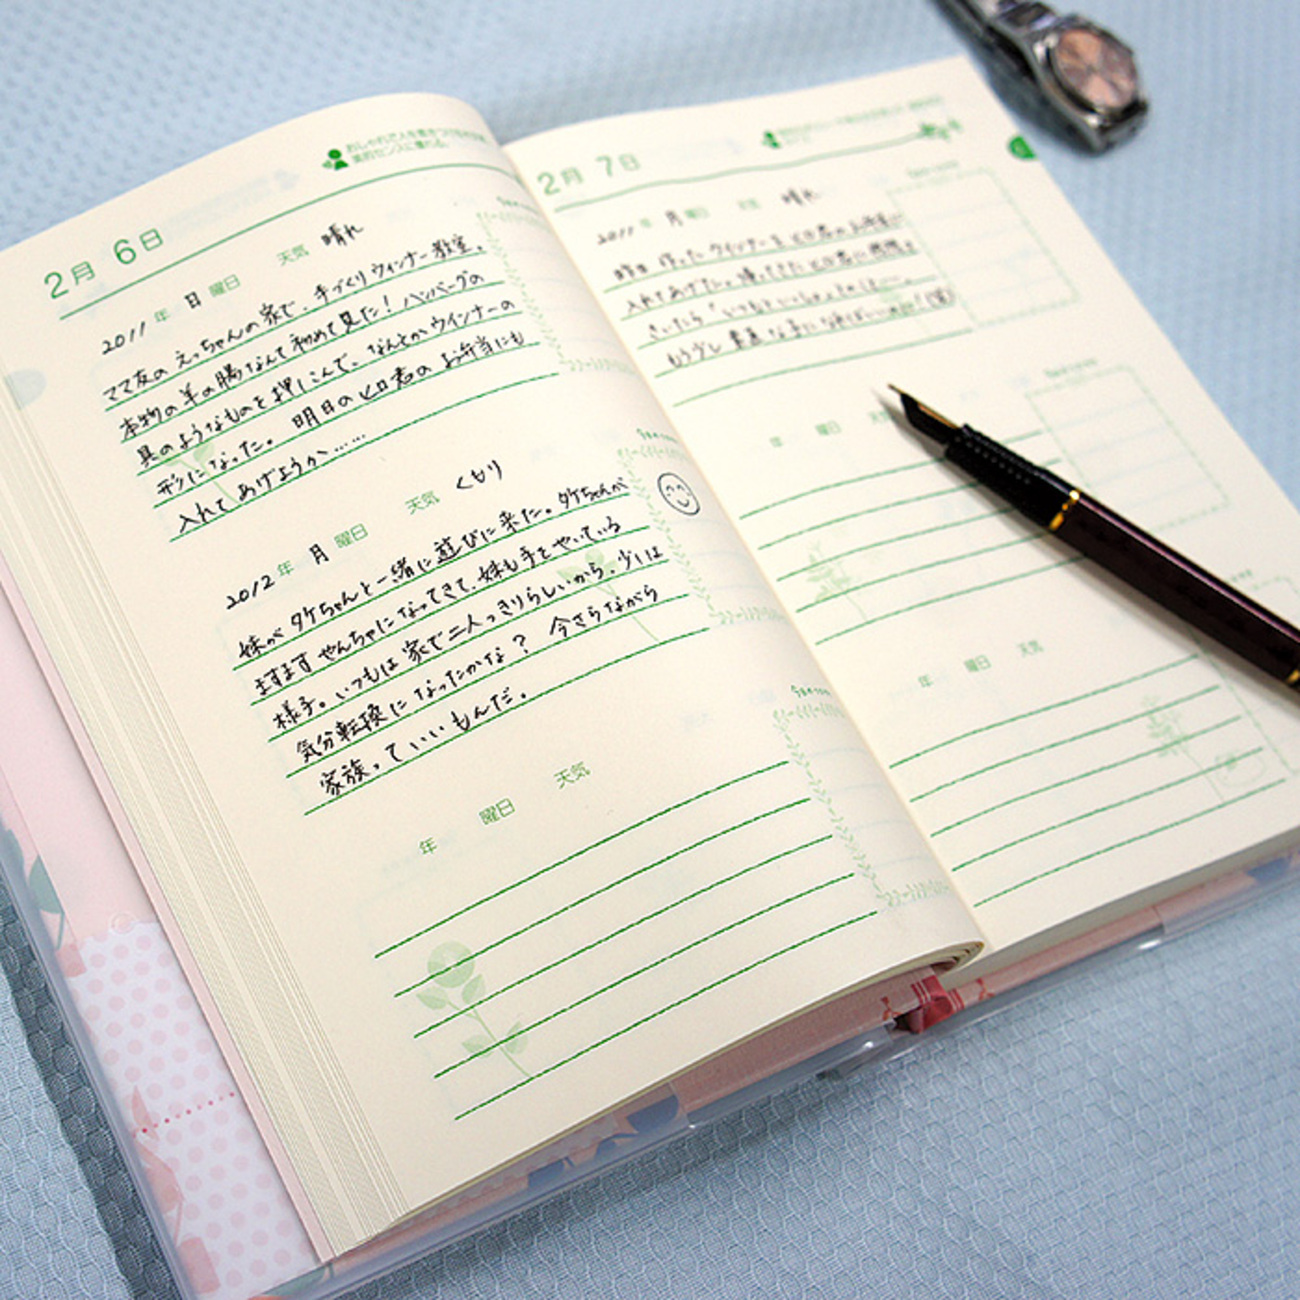 2月 6日
2011年 日曜日 天気 晴れ
ママ友の えっちゃんの家で、手づくりウィンナー教室。
本物の羊の腸なんて初めて見た！ ハンバーグの
具のようなものを押しこんで、なんとかウインナーの
形になった。 明日のヒロ君の お弁当にも
入れて あげようか……
2012年 月曜日 天気 くもり
妹が タケちゃんと一緒に遊びに来た。タケちゃんが
ますます やんちゃになってきて、妹も手をやいている
様子。いつもは 家で二人っきりらしいから、少しは
気分転換に なったかな？ 今さらながら
家族っていいもんだ。
年 曜日 天気
2月 7日
2011年 月曜日 天気 晴れ
昨日 作った ウインナーを ヒロ君のお弁当に
入れてあげた。帰ってきたヒロ君に感想を
きいたら「いつもと
もう少し 素直な子に
年 曜日 天気
年 曜日 天気